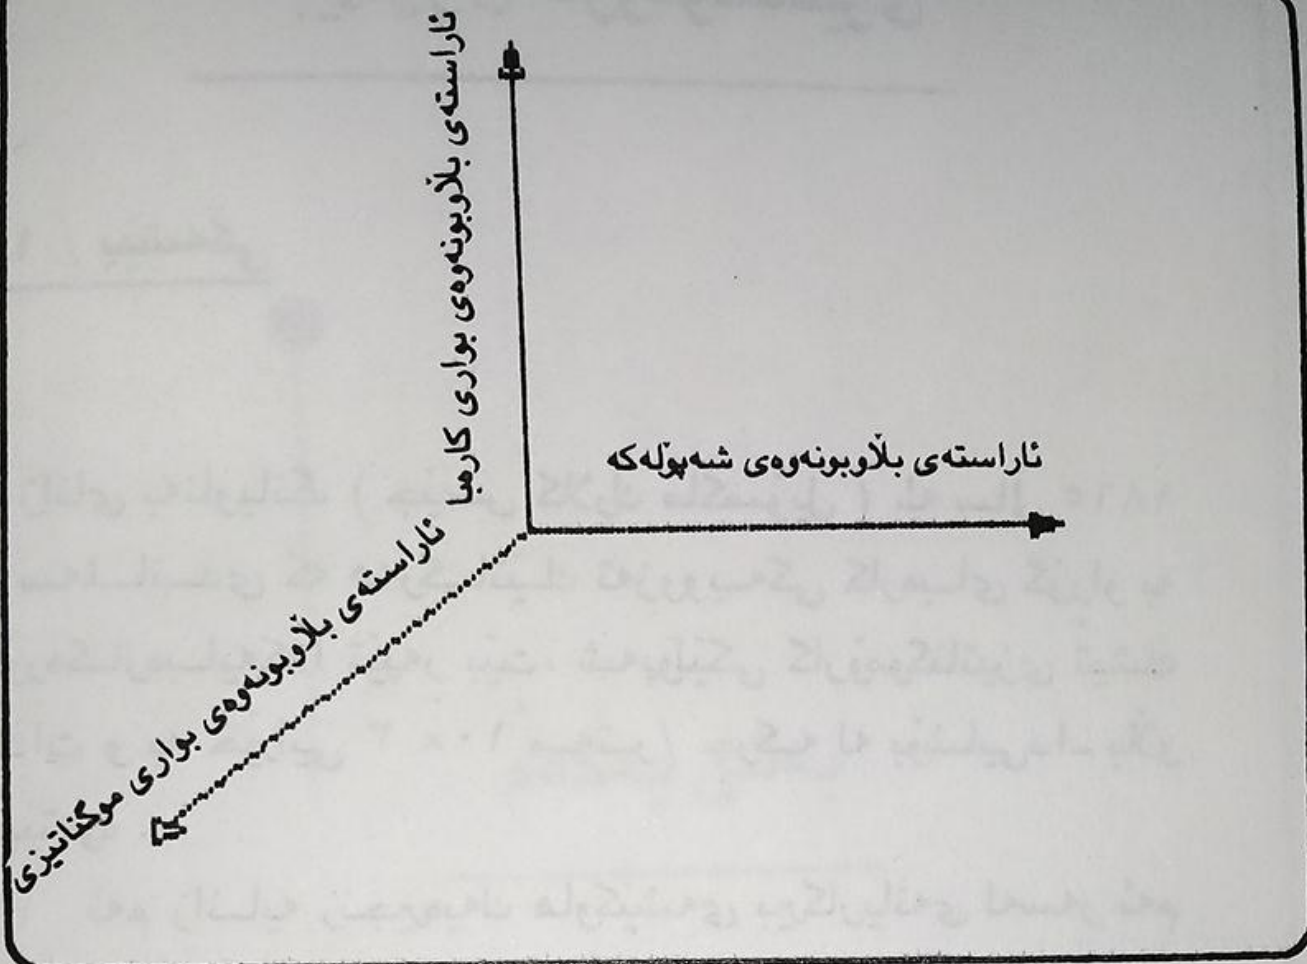 ئاراستەی بڵاوبونەوەی بواری کارەبا
ئاراستەی بڵاوبونەوەی شەپۆلەکە
ئاراستەی بڵاوبونەوەی بواری موگناتیزی